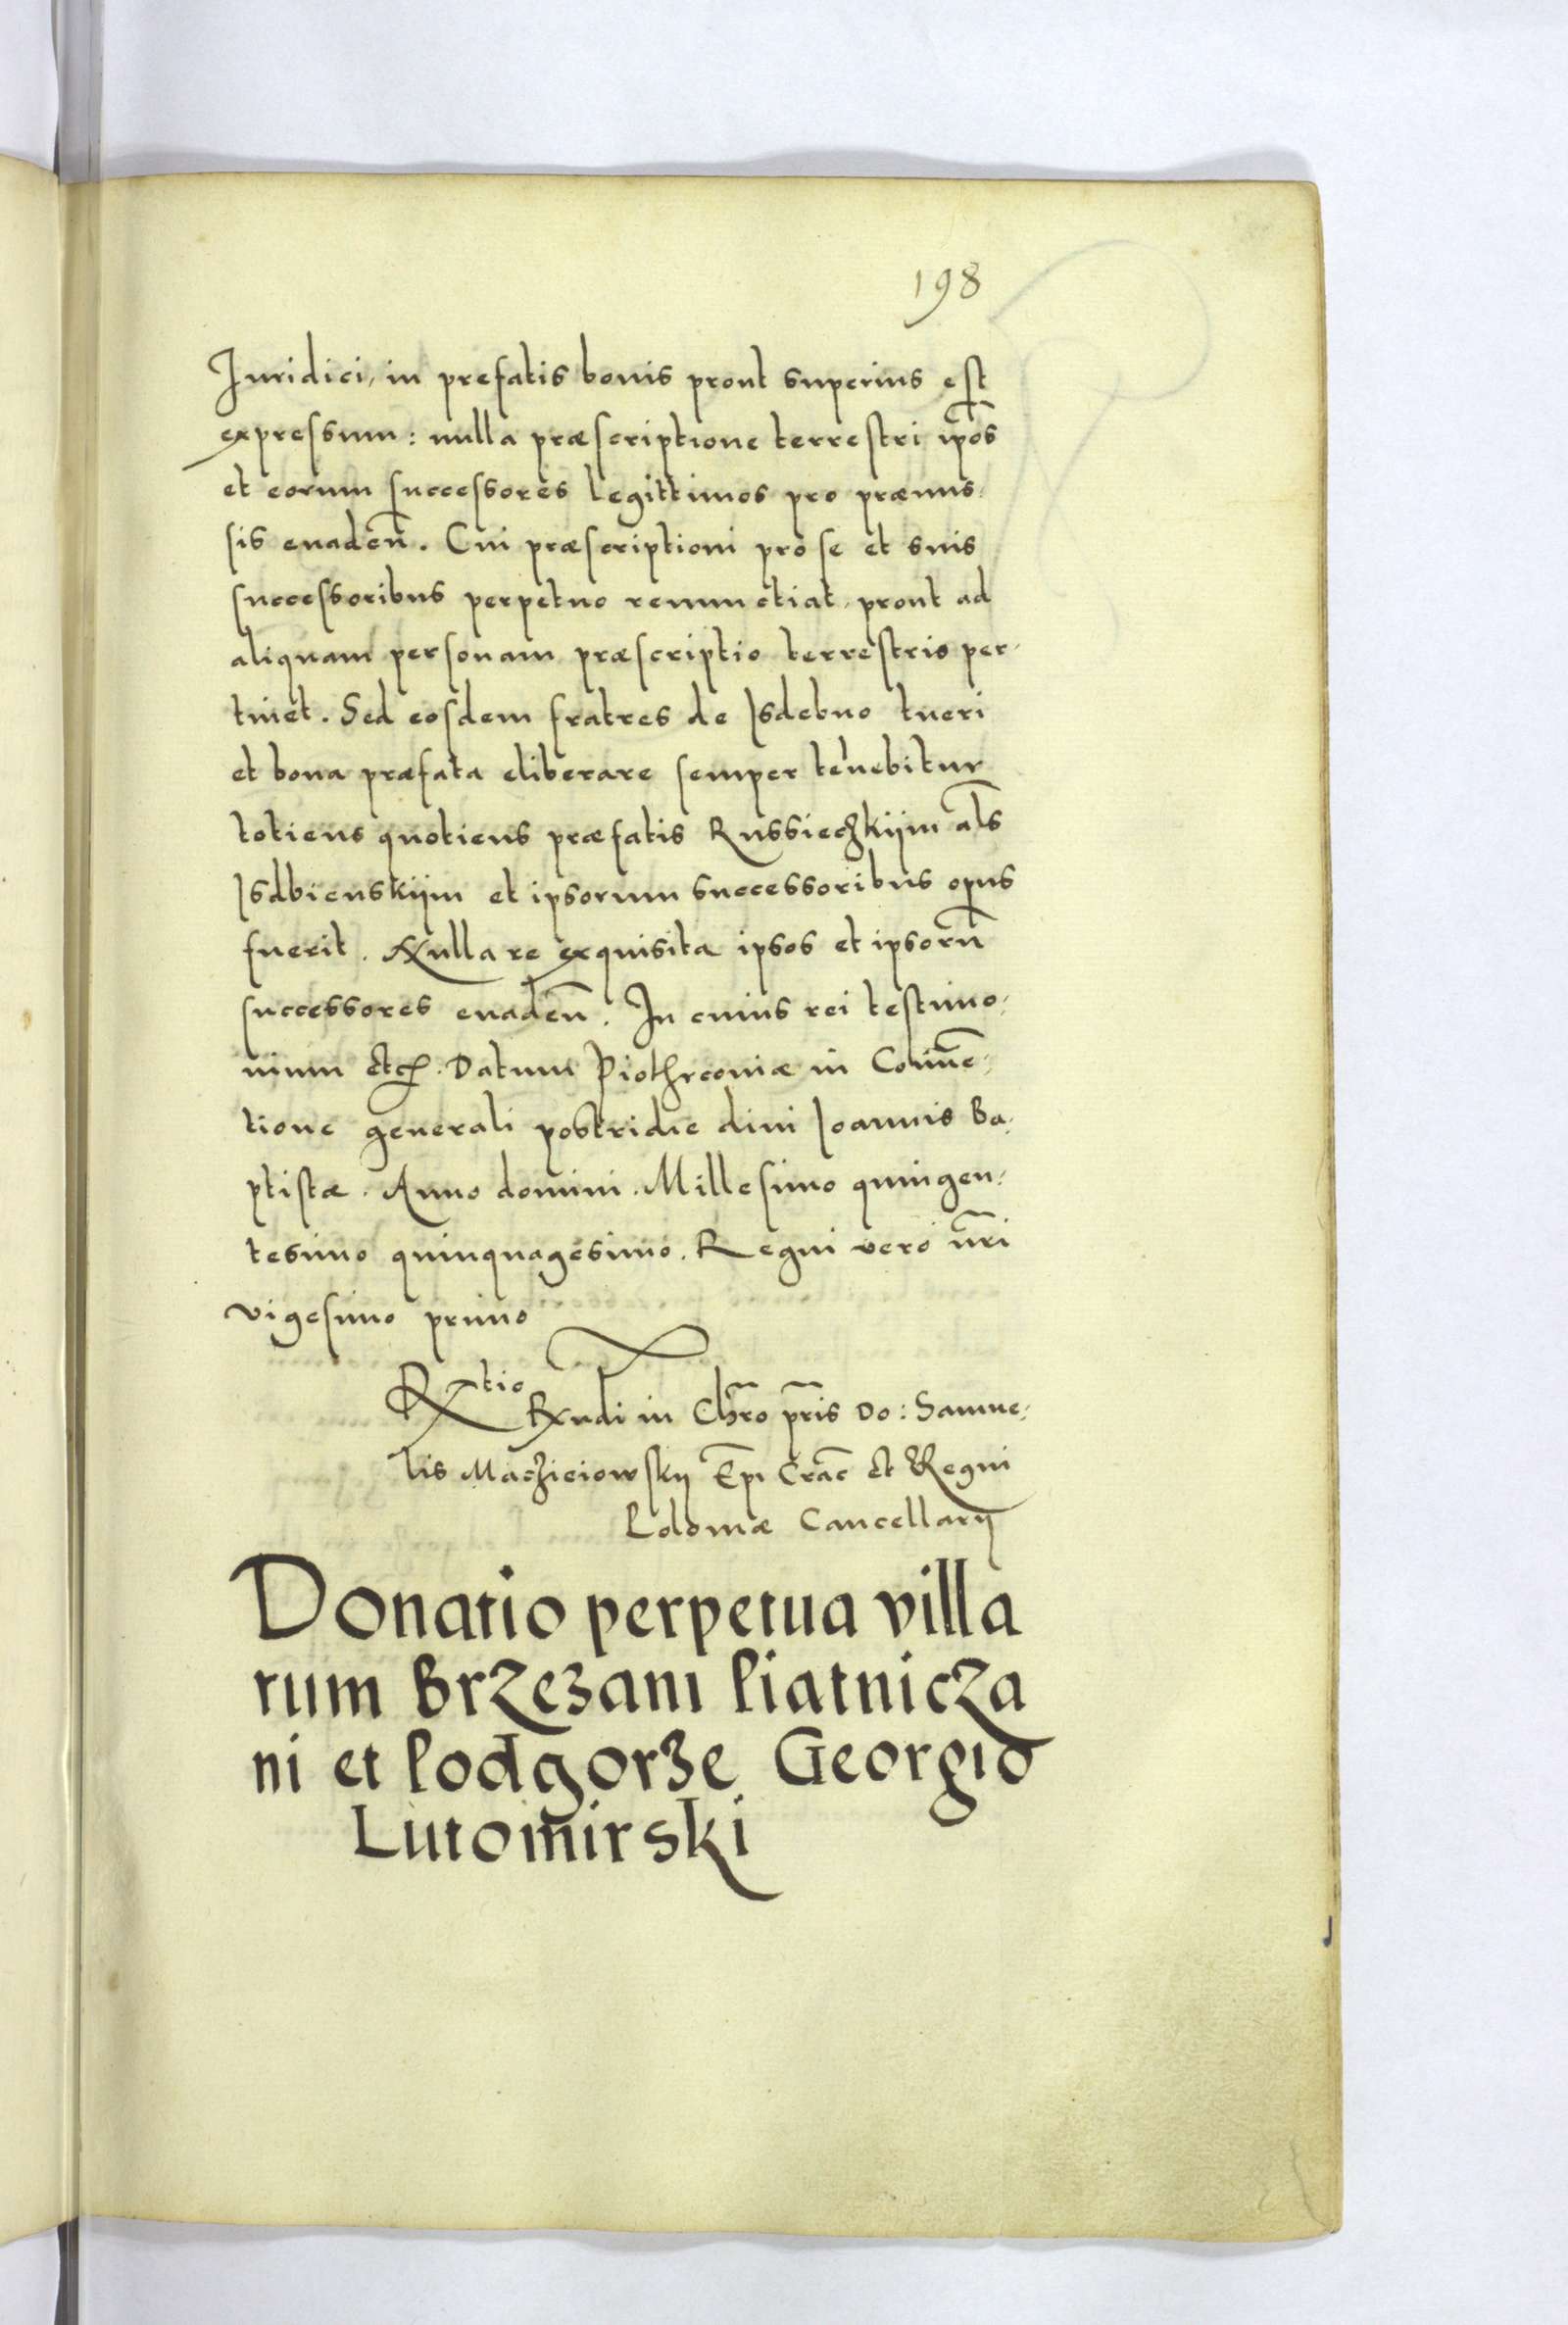 198
Juridici, in prefatis bonis prout superius est
expressum: nulla præscriptione terrestri ip̄os
et eorum successores legittimos pro præmis-
sis euaden̄. Cui præscriptioni pro se et suis
successoribus perpetuo renunctiat, prout ad
aliquam personam præscriptio terrestris per-
tinet. Sed eosdem fratres de Isdebno tueri
et bona præfata eliberare semper tenebitur
totiens quotiens præfatis Russieczkiim al̄s
Isdbienskiim et ipsorum successoribus opus
fuerit. Nulla re exquisita ipsos et ipsorū
successores euaden̄. In cuius rei testimo-
nium etc. Datum Piothrcouiæ in Conuē-
tione generali postridie diui Ioannis Ba-
ptistæ. Anno domini. Millesimo quingen-
tesimo quinquagesimo. Regni vero nr̄i
vigesimo primo
Rtio Rndi in Chr̄o pr̄is Do: Samue-
lis Maczieiowsky Ep̄i Crac̄ et Regni
Poloniæ Cancellarij
Donatio perpetua villa
rum Brzezani Piatnicza
ni et Podgorze Georgio
Lutomirski